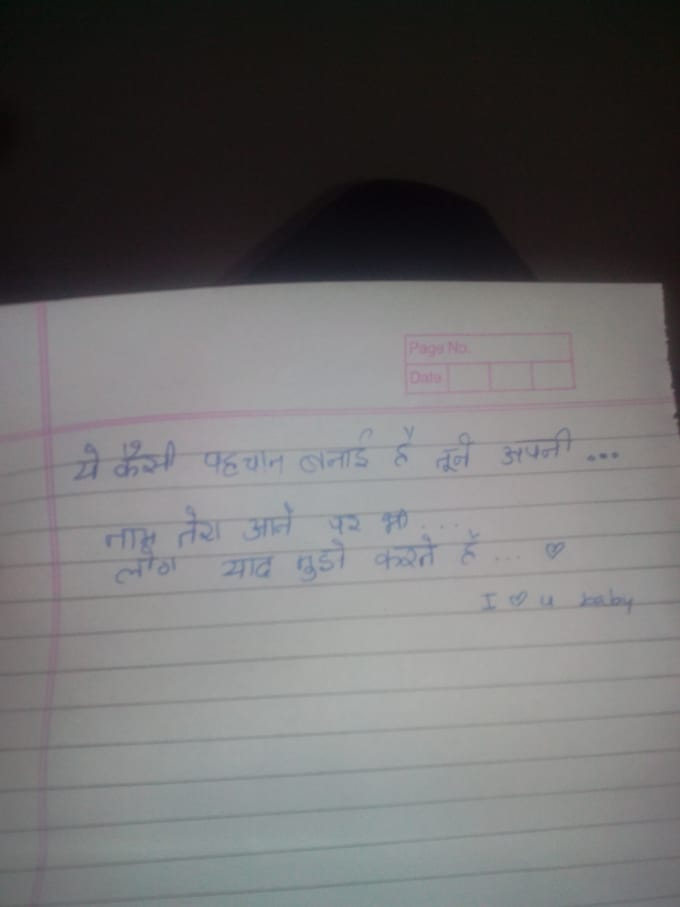 Page No.
Date
ये कैसी पहचान बनाई है तूने अपनी ...
नाम तेरा आने पर भी ...
लोग याद मुझे करते हैं ... ♡
I ♡ u baby